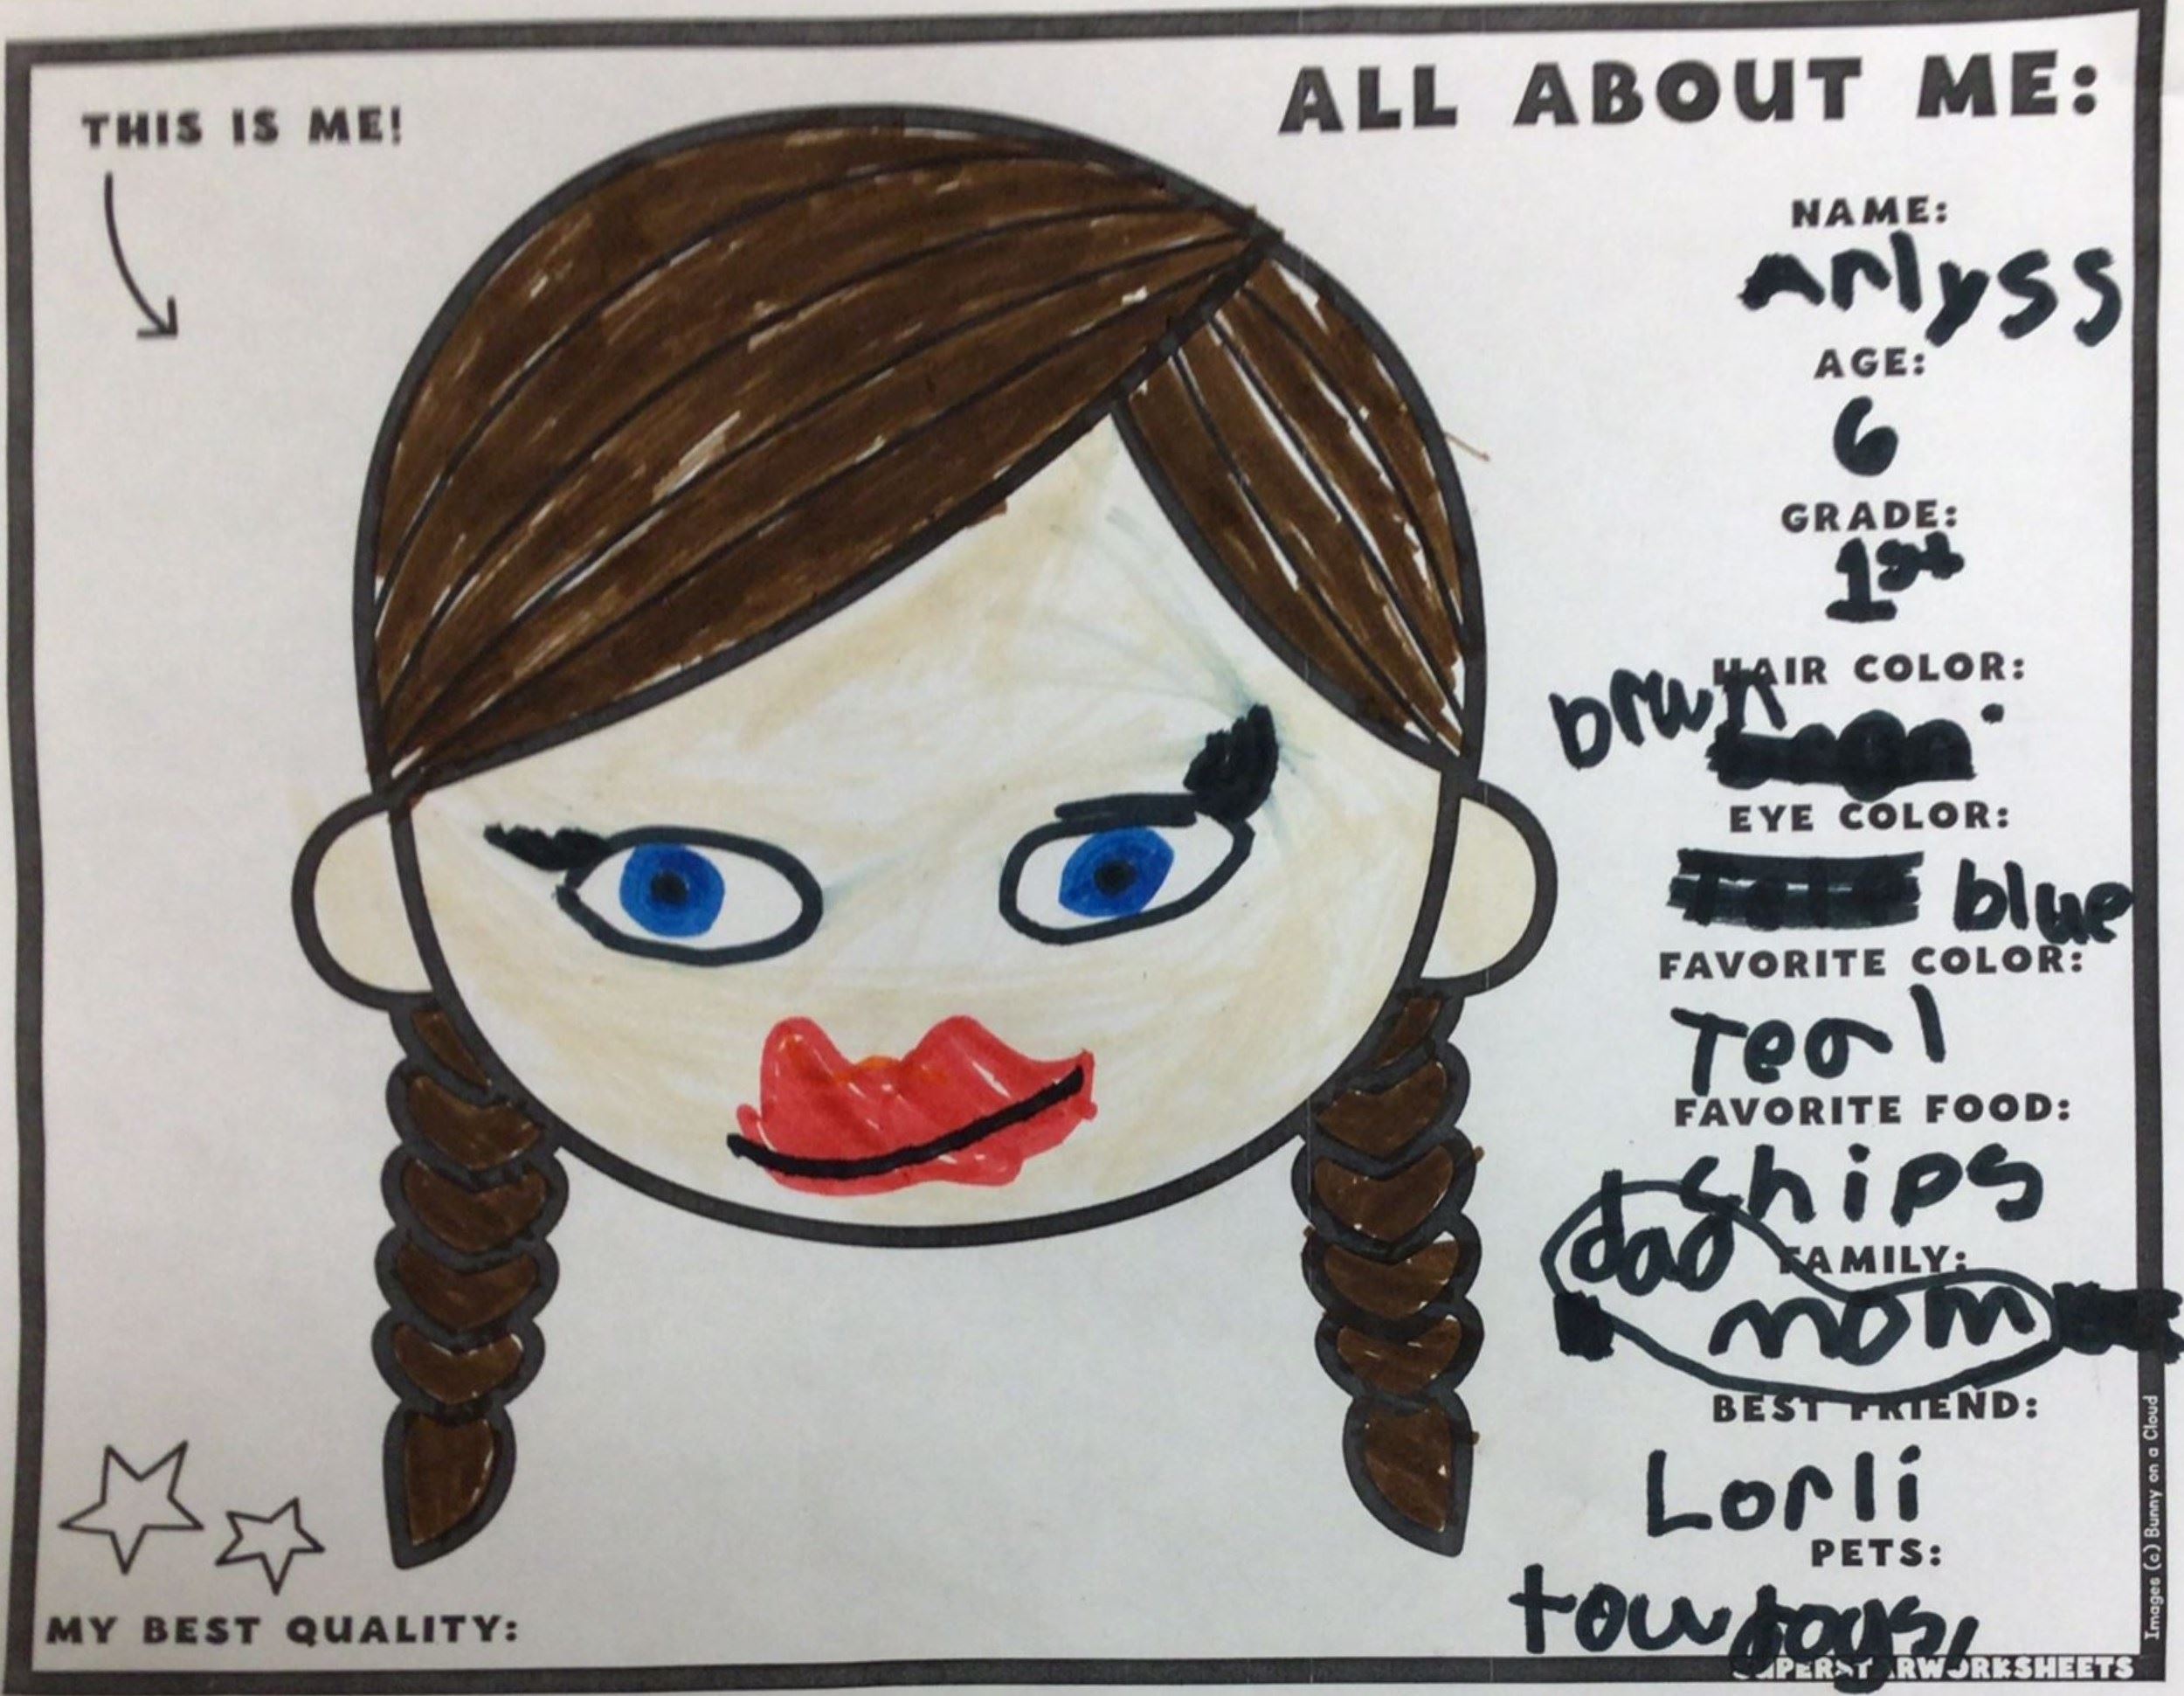 THIS IS ME!
ALL ABOUT ME:
NAME:
Arlyss
AGE:
6
GRADE:
1st
HAIR COLOR:
brwn
EYE COLOR:
blue
FAVORITE COLOR:
Teal
FAVORITE FOOD:
chips
FAMILY:
dad
mom
BEST FRIEND:
Lorli
PETS:
tow dogs,
MY BEST QUALITY:
SUPERSTARWORKSHEETS
Images (c) Bunny on a Cloud